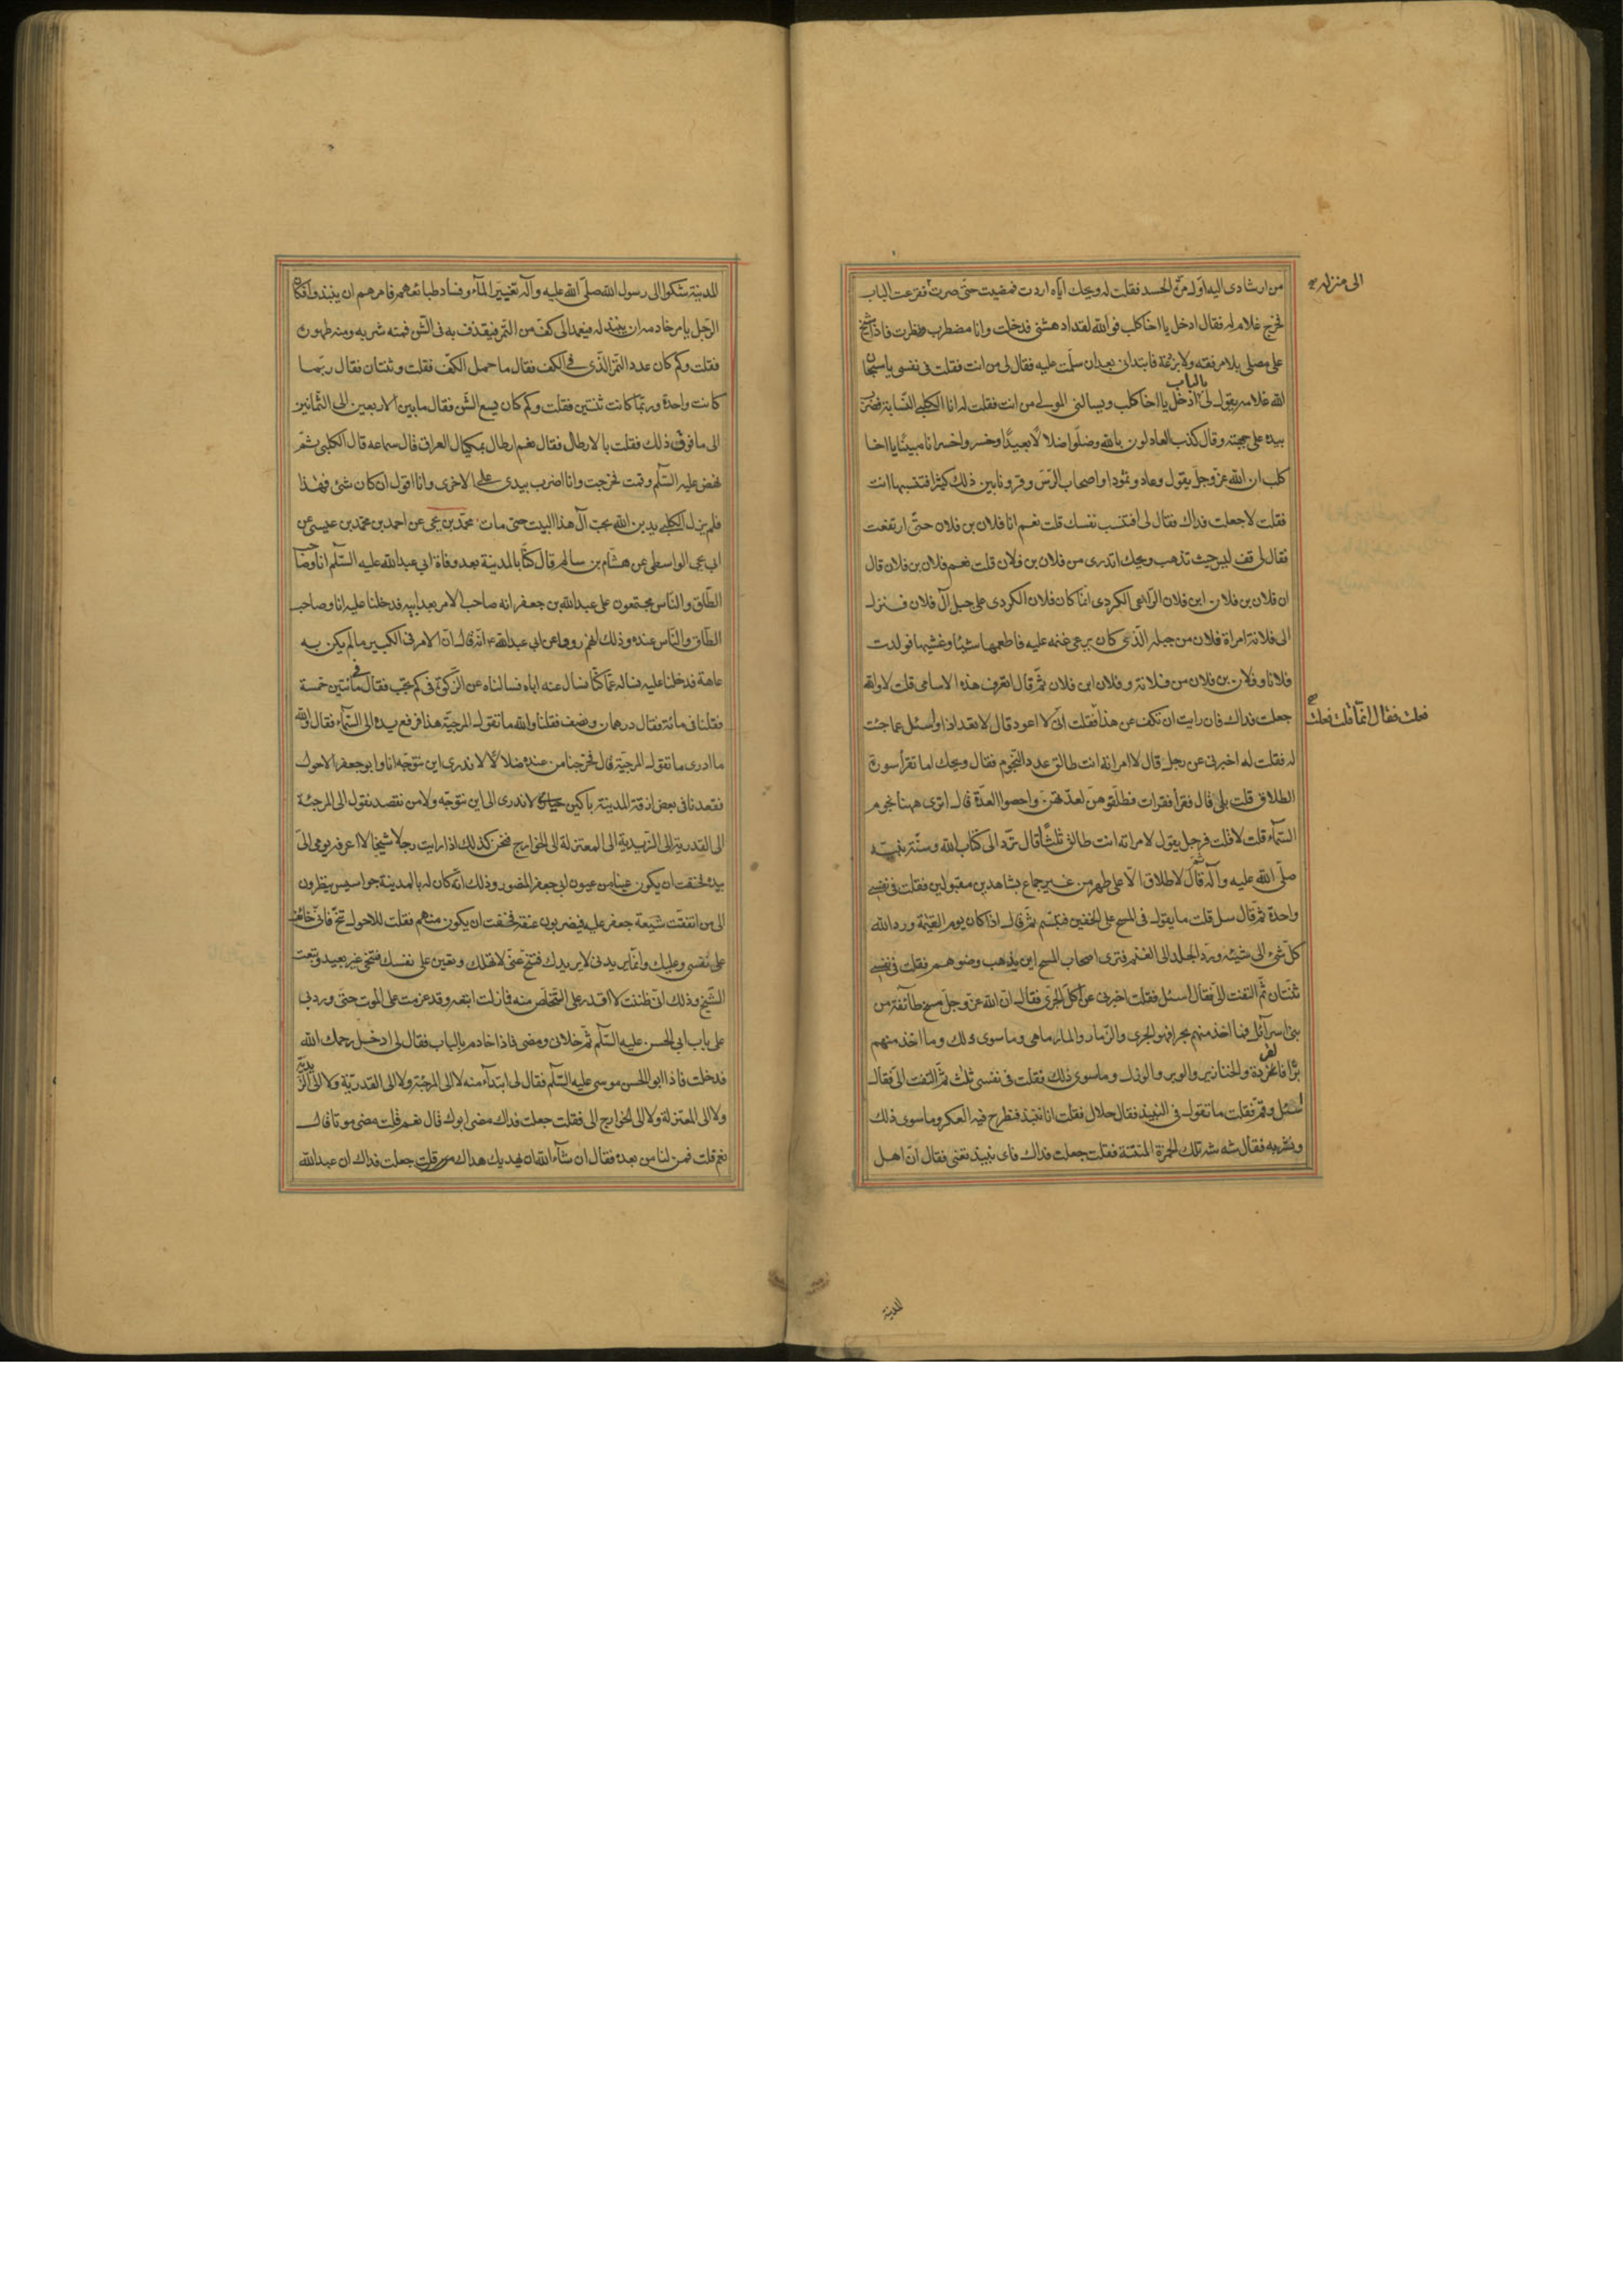 من ارشادى اليه اول مرّة الحسد فقلت له ويحك اياه اردت فمضيت حتى صرت فقرعت الباب
الى منزله صح
فخرج غلام له فقال ادخل يا اخا كلب فوالله لقد ادهشنى فدخلت وانا مضطرب ونظرت فاذا شيخ
على مصلى بلا مرفقة ولا بردعة فابتدانى بعد ان سلمت عليه فقال لى من انت فقلت فى نفسى يا سبحان
الله غلامه يقول لى بالباب ادخل يا اخا كلب ويسالنى المولى من انت فقلت له انا الكلبى النسابة فضرب
بيده على جبهته وقال كذب العادلون بالله وضلوا ضلالا بعيدا وخسروا خسرانا مبينا يا اخا
كلب ان الله عز وجل يقول وعادا وثمودا واصحاب الرس وقرونا بين ذلك كثيرا افتنسبها انت
فقلت لا جعلت فداك فقال لى افتنسب نفسك قلت نعم انا فلان بن فلان حتى ارتفعت
فقال لى قف ليس حيث تذهب ويحك اتدرى من فلان بن فلان قلت نعم فلان بن فلان قال
ان فلان بن فلان ابن فلان الراعى الكردى انما كان فلان الكردى على جبل آل فلان فنزل
الى فلانة امراة فلان من جبله الذى كان يرعى غنمه عليه فاطعمها شيئا وغشيها فولدت
فلانا وفلان بن فلان من فلانة وفلان ابن فلان ثم قال اتعرف هذه الاسامى قلت لا والله
جعلت فداك فان رايت ان تكف عن هذا فقلت انى لا اعود قال لا نعود اذا واسئل عما جئت
فعلت فقال انما قلت فقلت صح
له فقلت له اخبرنى عن رجل قال لامراته انت طالق عدد النجوم فقال ويحك اما تقرأ سورة
الطلاق قلت بلى قال فقرأ فقرات فطلقوهن لعدتهن واحصوا العدة قال اترى ههنا نجوم
السمآء قلت لا قلت فرجل يقول لامراته انت طالق ثلثا قال ترد الى كتاب الله وسنة نبيه
صلى الله عليه وآله ثم قال لا طلاق الا على طهر من غير جماع بشاهدين مقبولين فقلت فى نفسى
واحدة ثم قال سل قلت ما يقول فى المسح على الخفين فتبسم ثم قال اذا كان يوم القيمة ورد الله
كل شئ الى شيئه ورد الجلد الى الغنم فترى اصحاب المسح اين يذهب وضوهم فقلت فى نفسى
ثنتان ثم التفت الى فقال اسئل فقلت اخبرنى عن اكل الجرى فقال ان الله عز وجل مسخ طآئفة من
بنى اسرآئل فما اخذ منهم بحرا فهو الجرى والزمار والمارماهى وما سوى ذلك وما اخذ منهم
برا فالقردة والخنازير والوبر والورل وما سوى ذلك فقلت فى نفسى ثلث ثم التفت الى فقال
اسئل وقم فقلت ما تقول فى النبيذ فقال حلال فقلت انا ننبذ فنطرح فيه العكر وما سوى ذلك
ونشربه فقال شه شه تلك الخمرة المنتنة فقلت جعلت فداك فاى نبيذ تعنى فقال ان اهل
المدينة
المدينة شكوا الى رسول الله صلى الله عليه وآله تغيير المآء وفساد طبائعهم فامرهم ان ينبذوا فكان
الرجل يامر خادمه ان ينبذ له فيعمد الى كف من التمر فيقذف به فى الشن فمنه شربه ومنه طهوره
فقلت وكم كان عدد التمر الذى فى الكف فقال ما حمل الكف فقلت وثنتان فقال ربما
كانت واحدة وربما كانت ثنتين فقلت وكم كان يسع الشن فقال ما بين الاربعين الى الثمانين
الى ما فوق ذلك فقلت بالارطال فقال نعم ارطال بمكيال العراق قال سماعه قال الكلبى ثم
نهض عليه السلم وقمت فخرجت وانا اضرب بيدى على الاخرى وانا اقول ان كان شئ فهذا
فلم يزل الكلبى يدين الله بحب آل هذا البيت حتى مات محمد بن يحيى عن احمد بن محمد بن عيسى عن
ابى يحيى الواسطى عن هشام بن سالم قال كنا بالمدينة بعد وفاة ابى عبد الله عليه السلم انا وصاحب
الطاق والناس مجتمعون على عبد الله بن جعفر انه صاحب الامر بعد ابيه فدخلنا عليه انا وصاحب
الطاق والناس عنده وذلك انهم رووا عن ابى عبد الله ع انه قال ان الامر فى الكبير ما لم يكن به
عاهة فدخلنا عليه نساله عما كنا نسال عنه اباه فسالناه عن الزكوة فى كم تجب فقال فى مائتين خمسة
فقلنا فى مائة فقال درهمان ونصف فقلنا والله ما تقول المرجئة هذا فرفع يده الى السمآء فقال والله
ما ادرى ما تقول المرجئة قال فخرجنا من عنده ضلالا لا ندرى اين نتوجه انا وابو جعفر الاحول
فقعدنا فى بعض ازقة المدينة باكين حيارى لا ندرى الى اين نتوجه ولا من نقصد نقول الى المرجئة
الى القدرية الى الزيدية الى المعتزلة الى الخوارج فنحن كذلك اذا رايت رجلا شيخا لا اعرفه يومى الى
بيده فخفت ان يكون عينا من عيون ابى جعفر المنصور وذلك انه كان له بالمدينة جواسيس ينظرون
الى من اتفقت شيعة جعفر عليه فيضربون عنقه فخفت ان يكون منهم فقلت للاحول تنح فانى خائف
على نفسى وعليك وانما يريدنى لا يريدك فتنح عنى لا تهلك وتعين على نفسك فتنحى غير بعيد وتبعت
الشيخ وذلك انى ظننت لا اقدر على التخلص منه فما زلت اتبعه وقد عزمت على الموت حتى ورد بى
على باب ابى الحسن عليه السلم ثم خلانى ومضى فاذا خادم بالباب فقال لى ادخل رحمك الله
فدخلت فاذا ابو الحسن موسى عليه السلم فقال لى ابتدآء منه لا الى المرجئة ولا الى القدرية ولا الى الزيدية
ولا الى المعتزلة ولا الى الخوارج الى فقلت جعلت فداك مضى ابوك قال نعم قلت مضى موتا قال
نعم قلت فمن لنا من بعده فقال ان شآء الله ان يهديك هداك قلت جعلت فداك ان عبد الله